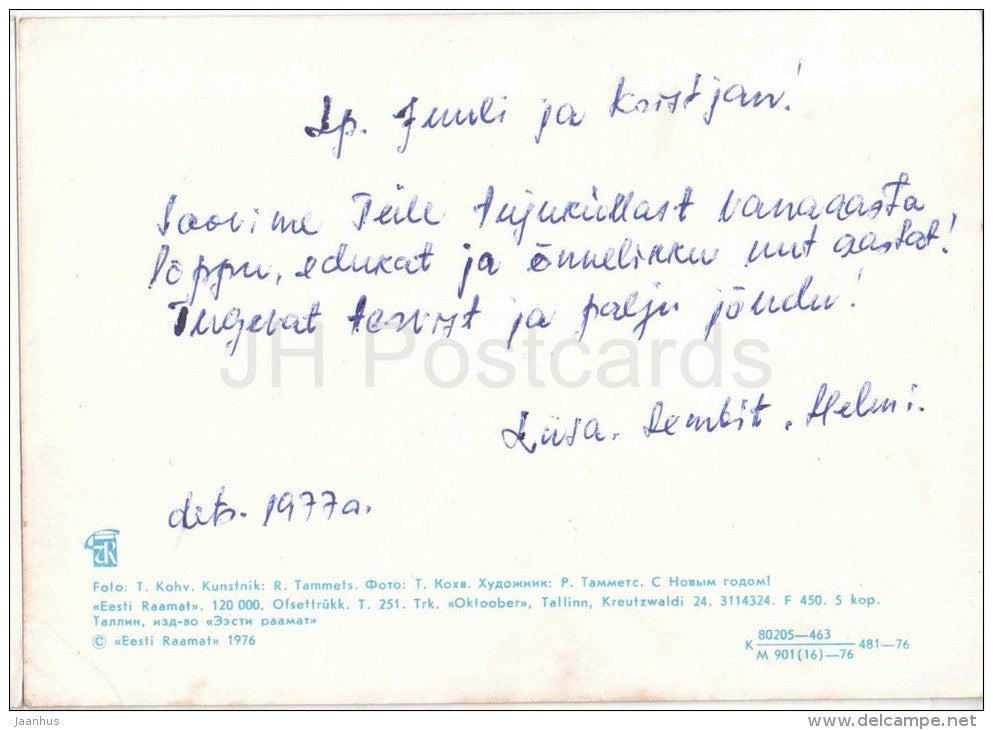 Lp. Juuli ja Kristjan!
Soovime Teile tujuküllast vanaaasta
lõppu, edukat ja õnnelikku uut aastat!
Tugevat tervist ja palju jõudu!
JH Postcards
Liisa. Lembit. Helmi.
dets. 1977a.
Foto: T. Kohv. Kunstnik: R. Tammets. Фото: Т. Кохв. Художник: Р. Тамметс. С Новым годом!
«Eesti Raamat». 120 000. Ofsettrükk. T. 251. Trk. «Oktoober», Tallinn, Kreutzwaldi 24. 3114324. F 450. 5 kop.
Таллин, изд-во «Ээсти раамат»
© «Eesti Raamat» 1976
К 80205—463 481—76
М 901(16)—76
Jaanhus
www.delcampe.net